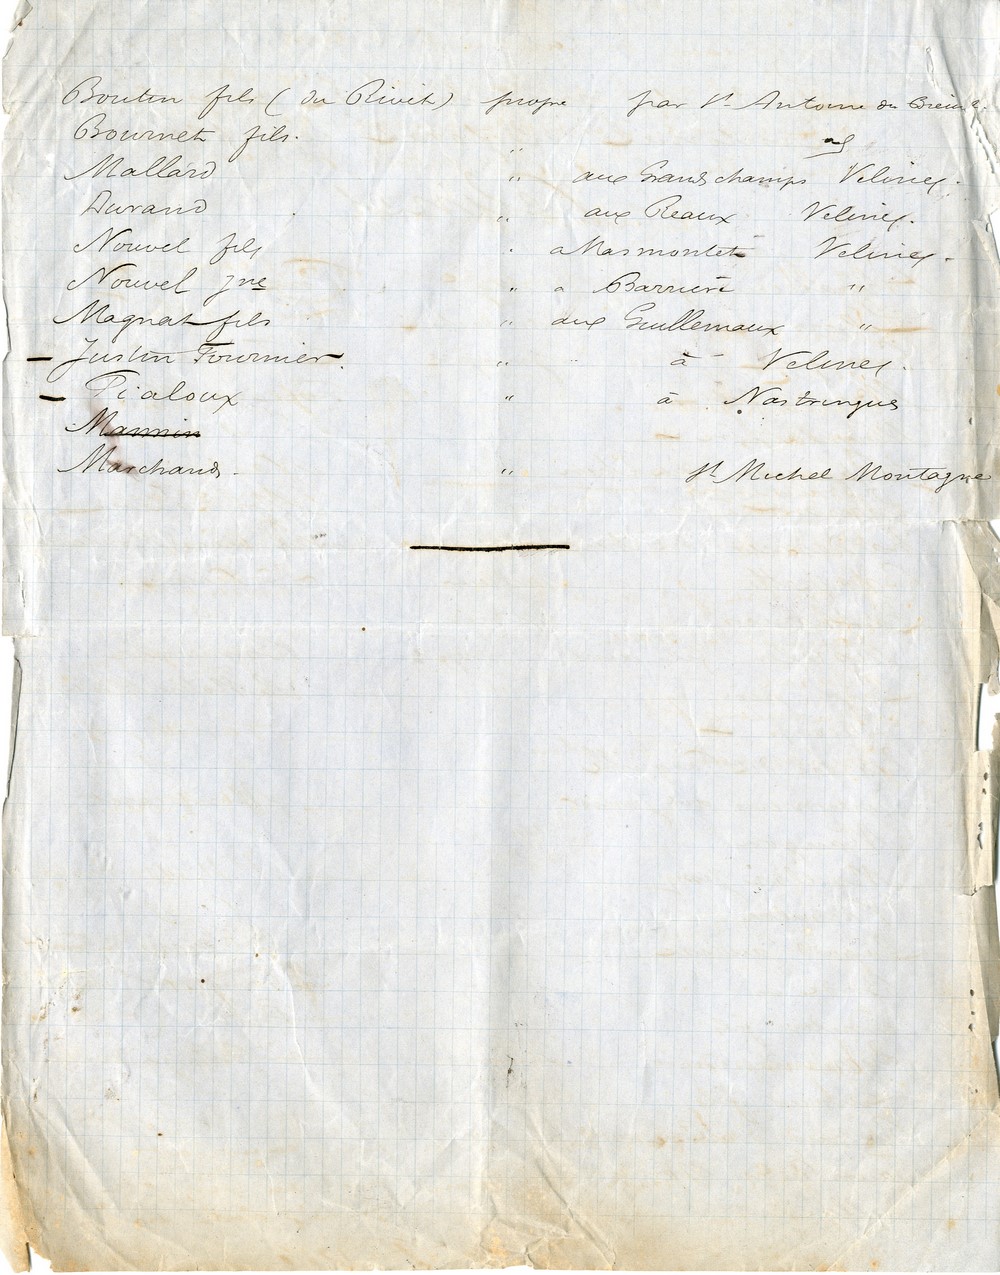 Boutin fils (du Rivet) propre par St Antoine du Breuilh
Bournet fils. "
Mallard " aux Grands champs Velines.
Durand " aux Reaux Velines.
Nouvel fils " a Masmontet Velines.
Nouvel Jne " a Barriere "
Magnat fils " aux Guillemaux "
– Justin Fournier. " à Velines.
– Pialoux " à Nastringues
Mannin
Marchand. " St Michel Montagne